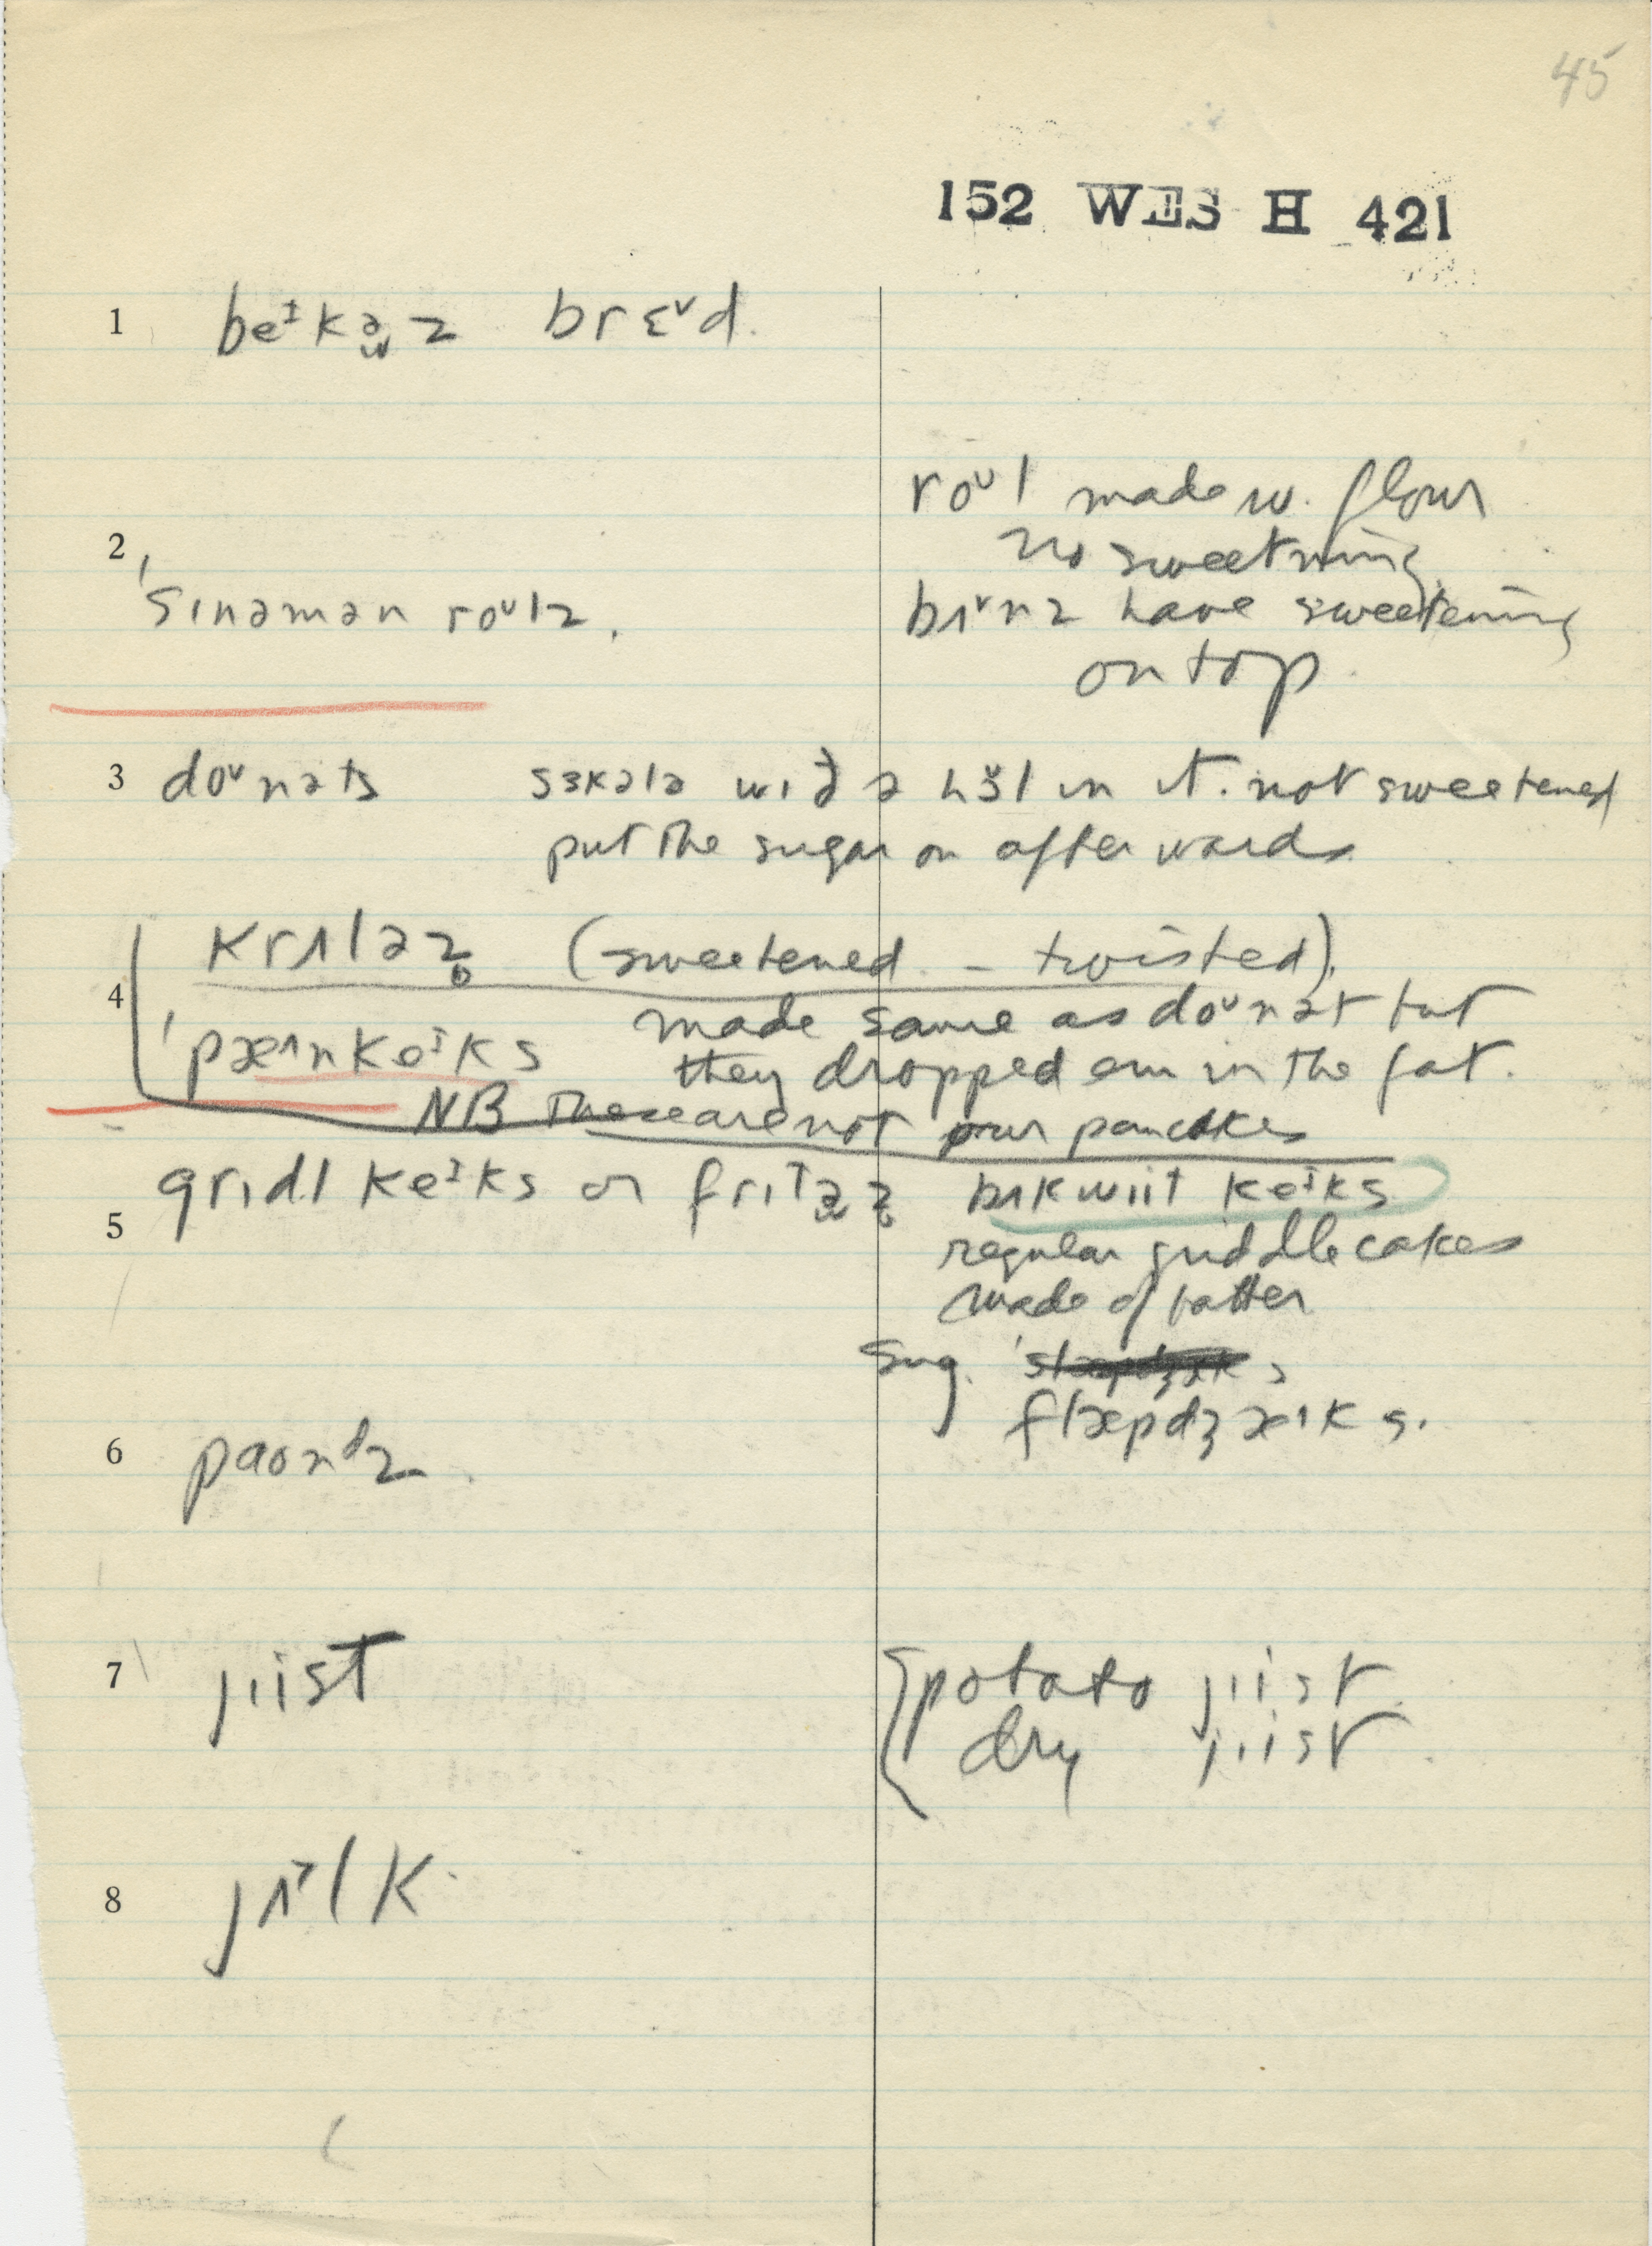 45
152 WES H 421
1 beᶦkəz brɛᵛd.
roᵘl made w. flour
no sweetning
2 ˈsɪnəmən roᵘlz.
bʌᵛnz have sweetening
on top.
3 doᵘnəts sɜkələ wɪð ə hɜ̆l in it. not sweetened
put the sugar on afterwards
4 krʌləz̥ (sweetened - twisted).
made same as doᵘnət but
ˈpæᶺnkeᶦks they dropped em in the fat.
NB These are not our pancakes
5 grɪdl keᶦks or frɪtəz̥ bʌkwiit keᶦks
regular griddle cakes
made of batter
Sug.
flæpdʒæᶺks.
6 paʊnᵈz.
7 jiist {potato jiist
dry jiist.
8 jʌ˃lk.